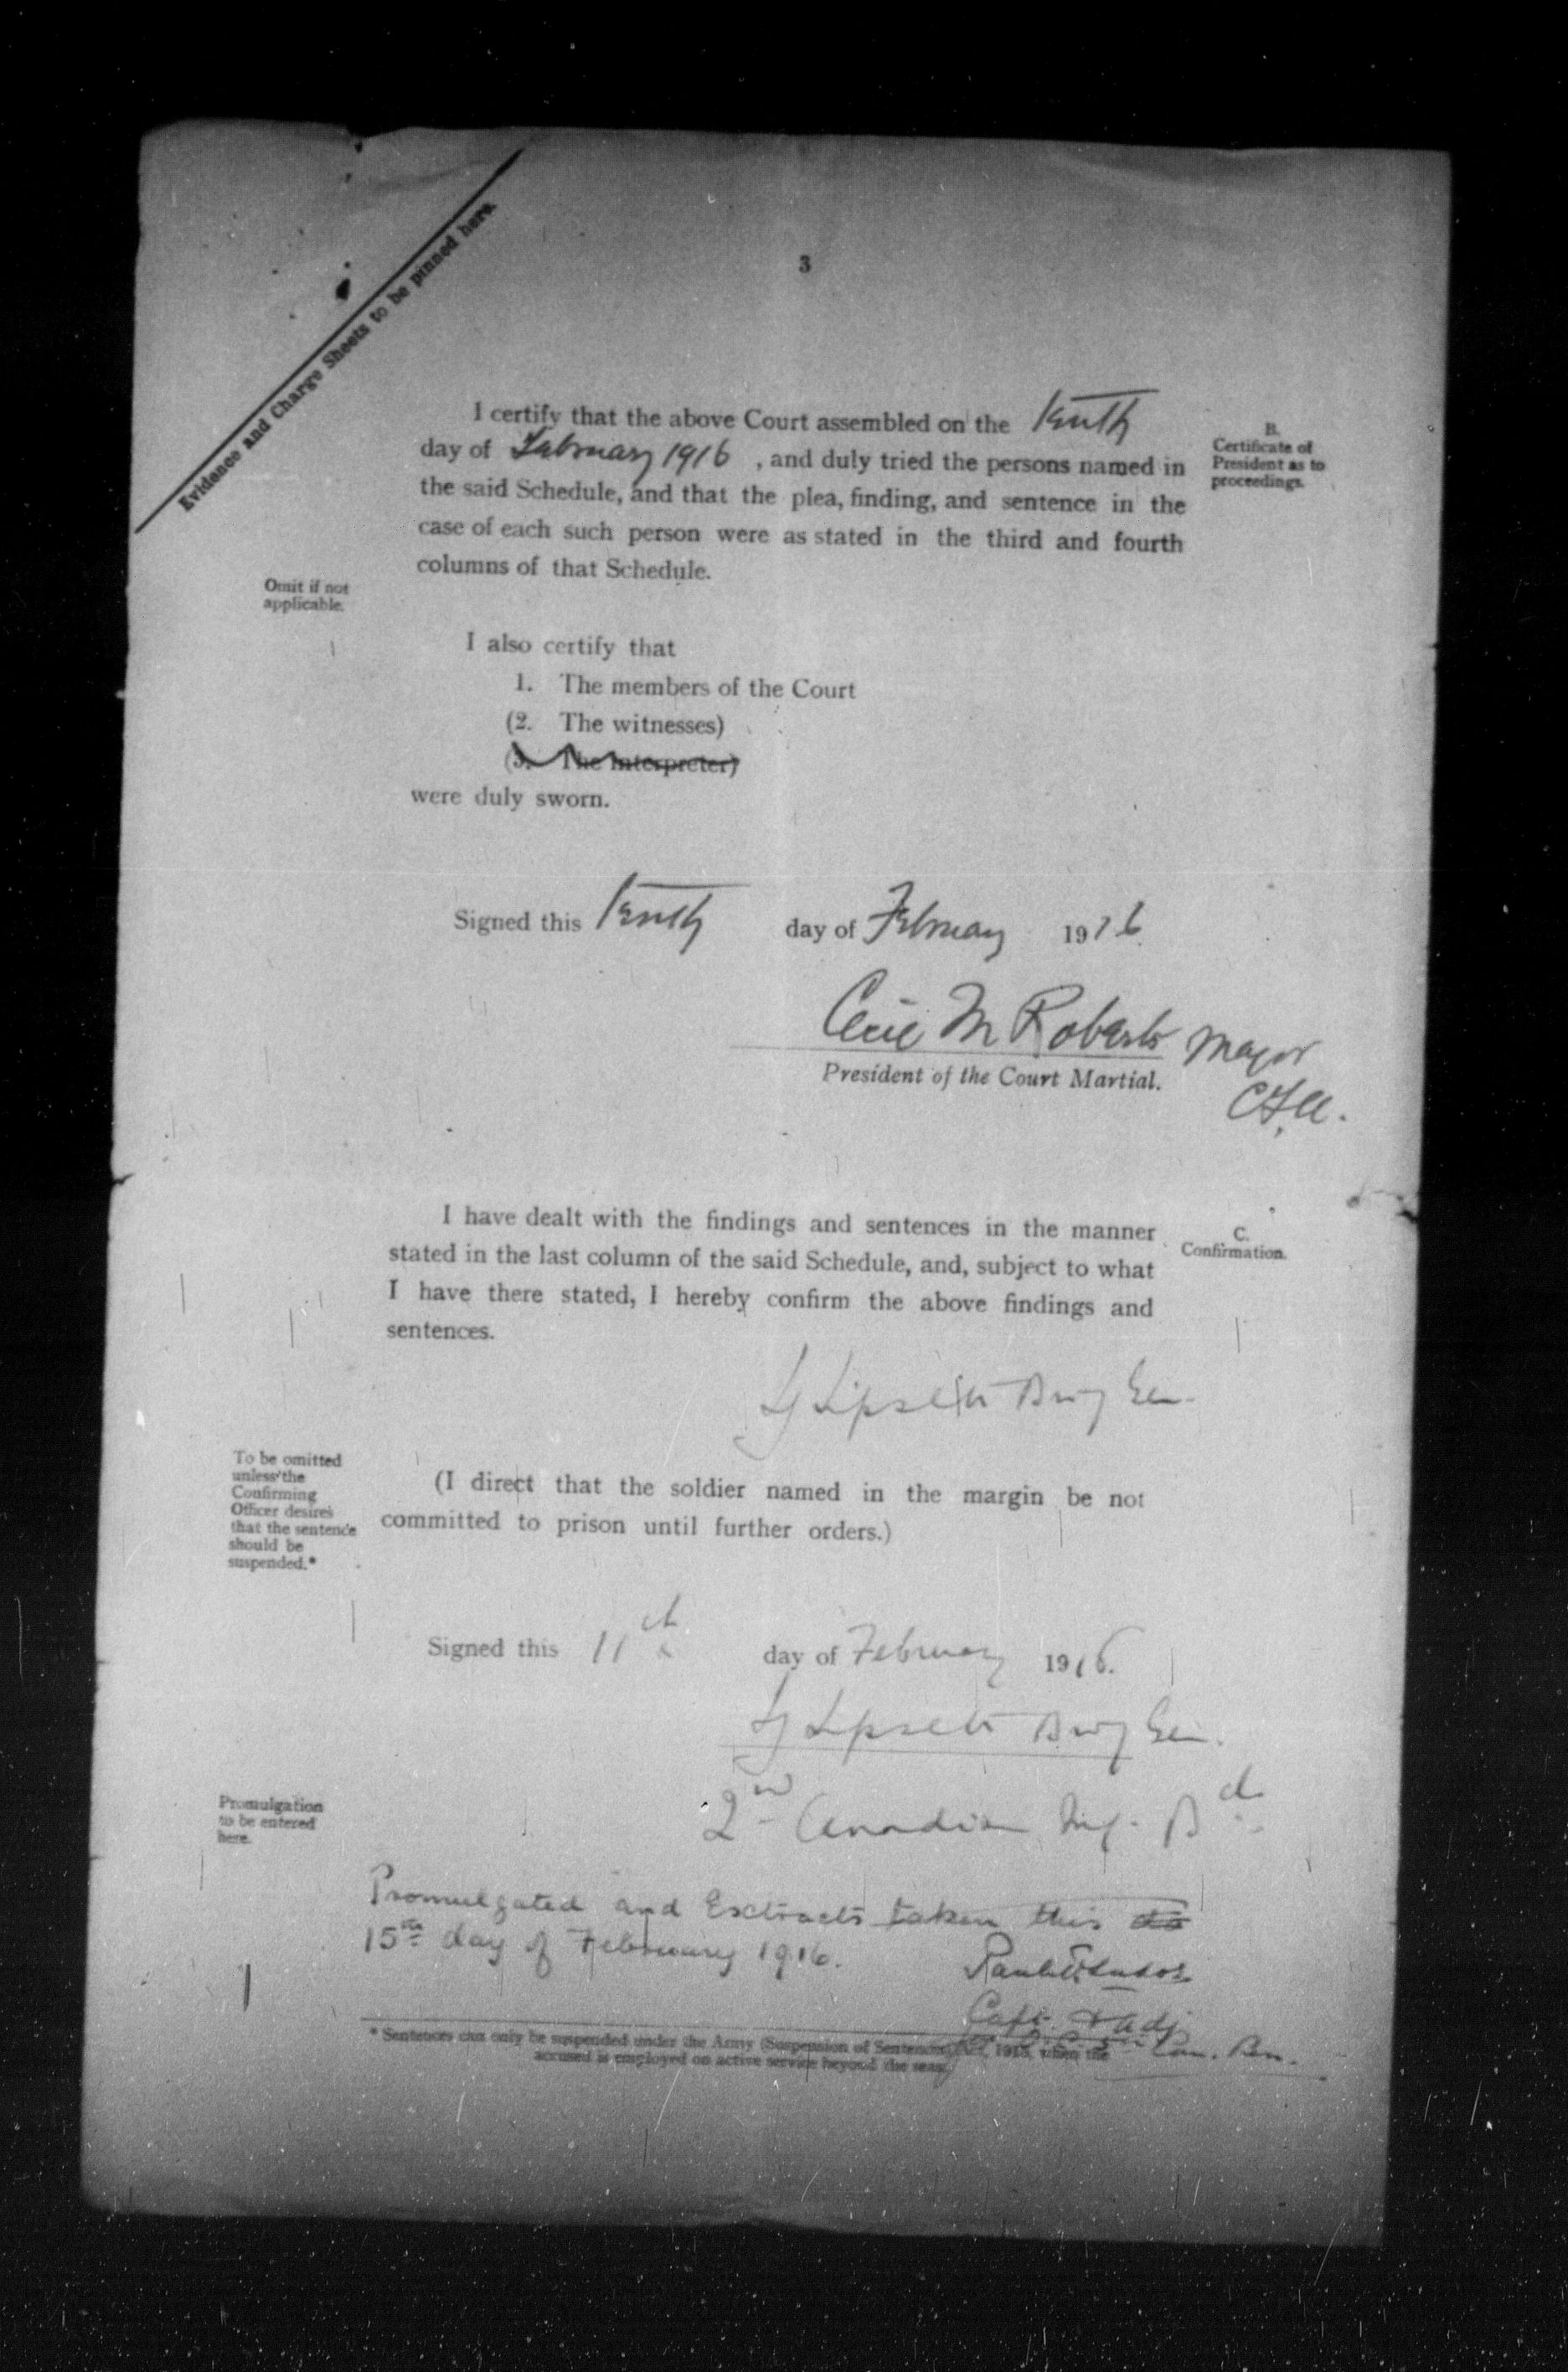 Evidence and Charge Sheets to be pinned here.
3
I certify that the above Court assembled on the Tenth
day of February 1916, and duly tried the persons named in
the said Schedule, and that the plea, finding, and sentence in the
case of each such person were as stated in the third and fourth
columns of that Schedule.
B.
Certificate of
President as to
proceedings.
Omit if not
applicable.
I also certify that
1. The members of the Court
(2. The witnesses)
(3. The Interpreter)
were duly sworn.
Signed this Tenth day of February 1916
Cecil M Roberts Major
President of the Court Martial.
C.F.A.
I have dealt with the findings and sentences in the manner
stated in the last column of the said Schedule, and, subject to what
I have there stated, I hereby confirm the above findings and
sentences.
C.
Confirmation.
Lipsett Brig Gen.
To be omitted
unless the
Confirming
Officer desires
that the sentence
should be
suspended.*
(I direct that the soldier named in the margin be not
committed to prison until further orders.)
Signed this 11th day of February 1916.
Lipsett Brig Gen.
2nd Canadian Inf. Bd.
Promulgation
to be entered
here.
Promulgated and Extracts taken this
15th day of February 1916.
Capt. & Adj
Can. Bn.
* Sentences can only be suspended under the Army (Suspension of Sentences) Act, 1915, when the
accused is employed on active service beyond the seas.